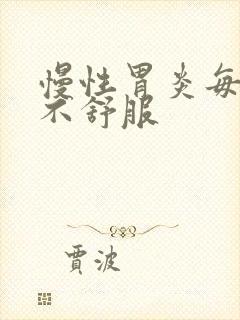 慢性胃炎每
不舒服
贾波